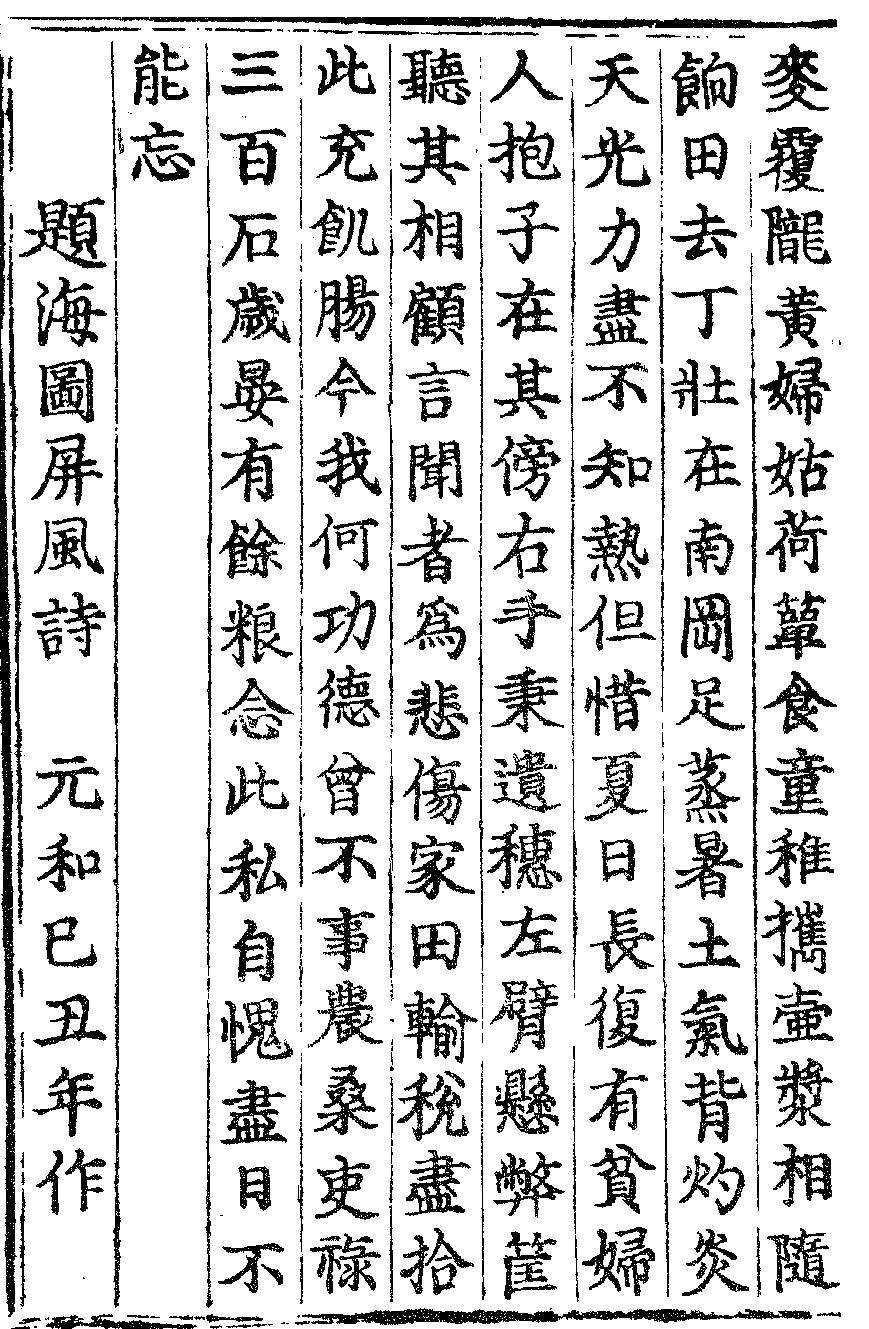 麥覆隴黃婦姑荷簞食童稚攜壷漿相隨
餉田去丁壯在南岡足蒸暑土氣背灼炎
天光力盡不知熱但惜夏日長復有貧婦
人抱子在其傍右手秉遺穗左臂懸弊筐
聽其相顧言聞者爲悲傷家田輸稅盡拾
此充飢腸今我何功德曾不事農桑吏祿
三百石歲晏有餘粮念此私自愧盡日不
能忘
題海圖屏風詩　元和巳丑年作